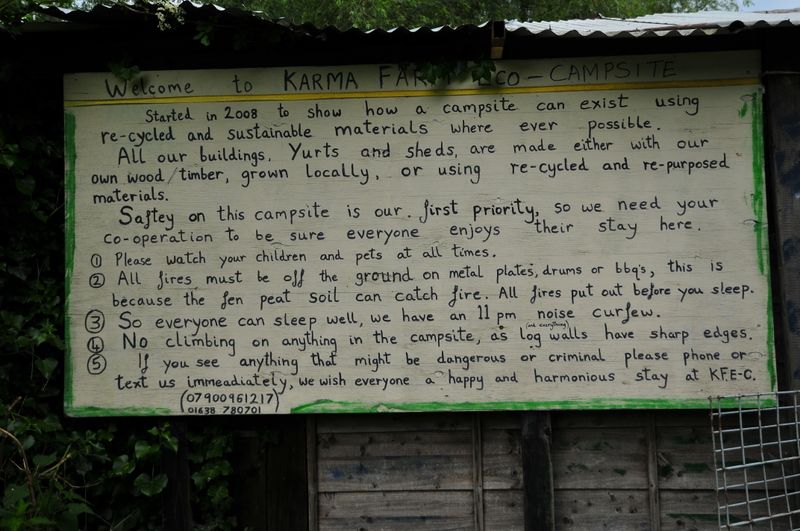 Welcome to KARMA FARM ECO-CAMPSITE
Started in 2008 to show how a campsite can exist using
re-cycled and sustainable materials where ever possible.
All our buildings, Yurts and sheds, are made either with our
own wood/timber, grown locally, or using re-cycled and re-purposed
materials.
Saftey on this campsite is our first priority, so we need your
co-operation to be sure everyone enjoys their stay here.
① Please watch your children and pets at all times.
② All fires must be off the ground on metal plates, drums or bbq's, this is
because the fen peat soil can catch fire. All fires put out before you sleep.
③ So everyone can sleep well, we have an 11 pm noise curfew.
④ No climbing on anything in the campsite, as log (and everything) walls have sharp edges.
⑤ If you see anything that might be dangerous or criminal please phone or
text us immeadiately, we wish everyone a happy and harmonious stay at K.F.E-C.
(07900961217)
01638 780701